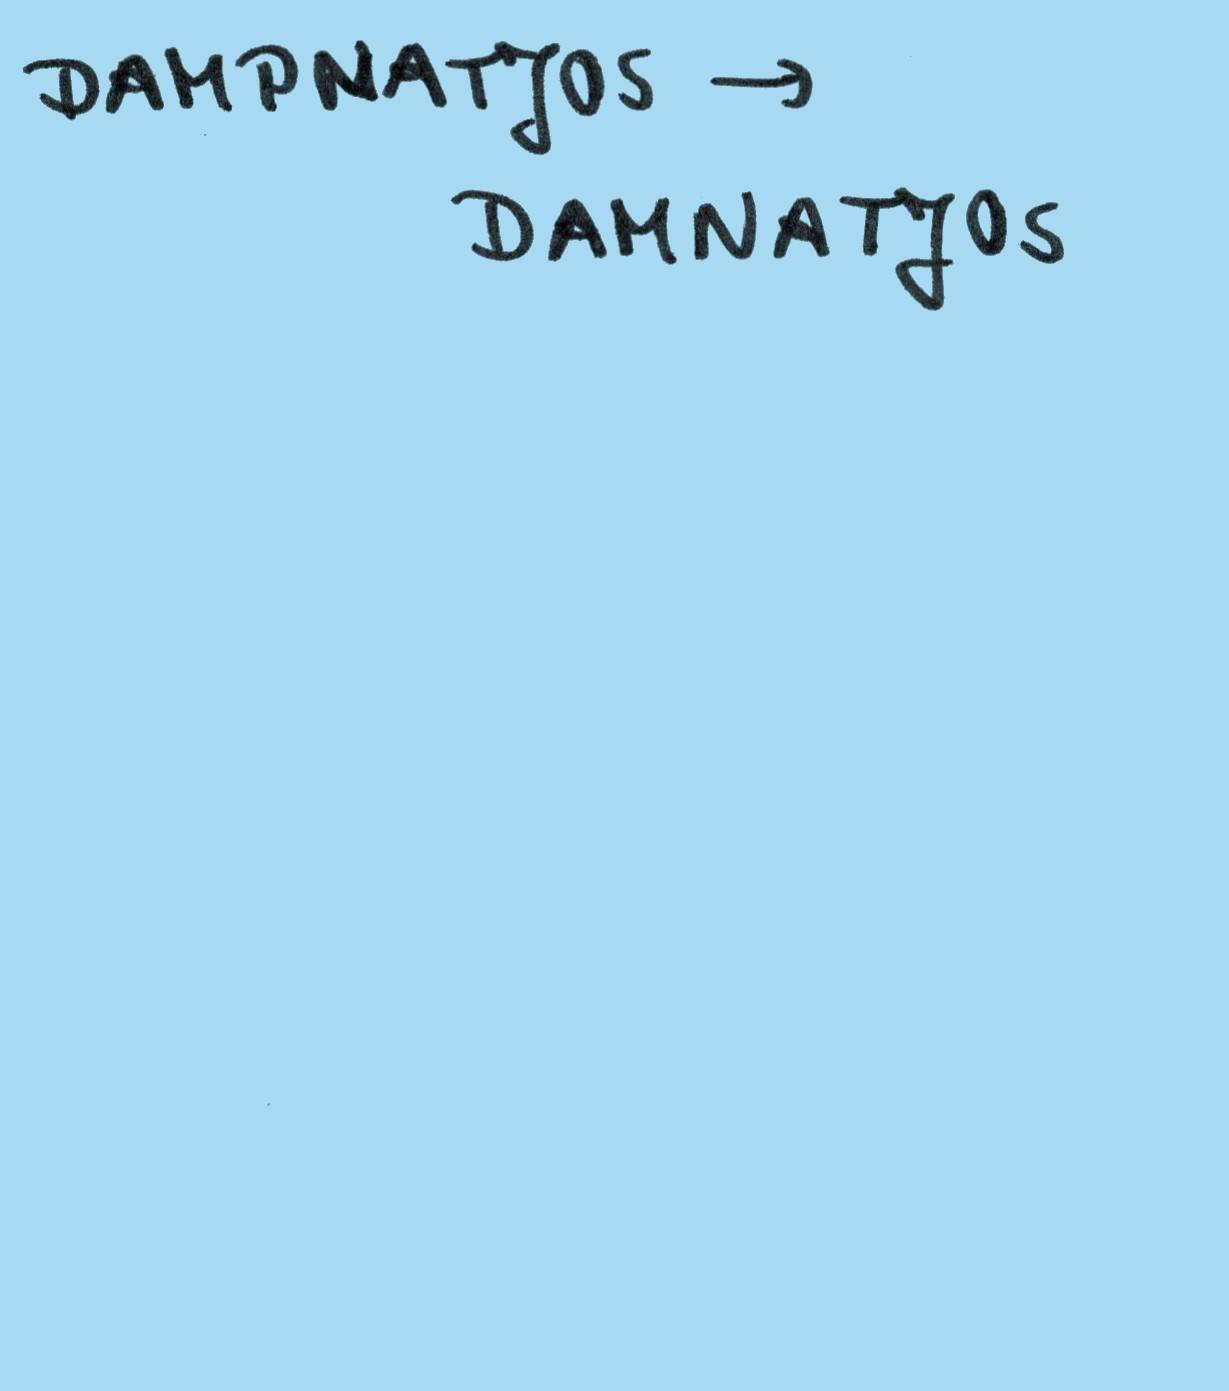 DAMPNATJOS →
DAMNATJOS